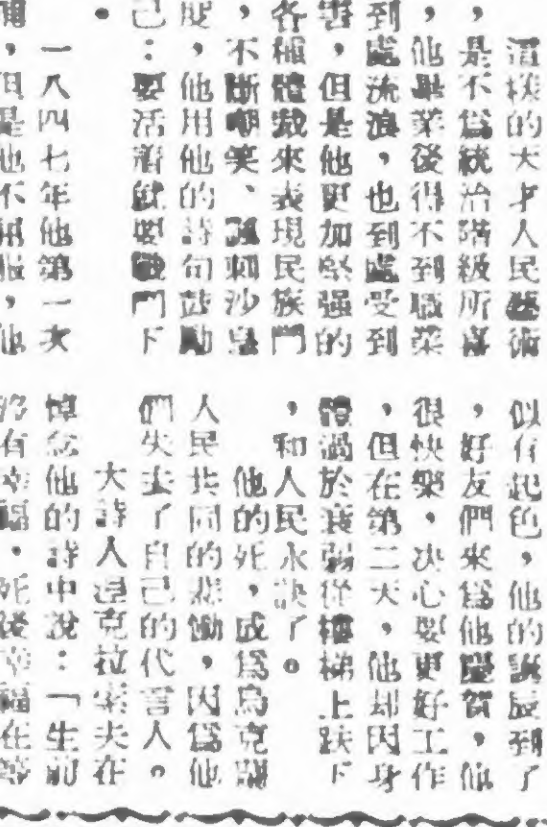 這樣的天才人民藝術
，是不爲統治階級所喜
，他畢業後得不到職業
到處流浪，也到處受到
害，但是他更加堅强的
各種體裁來表現民族鬥
，不斷嘲笑、諷刺沙皇
度，他用他的詩句鼓勵
己：要活着就要戰鬥下
。
一八四七年他第一次
，但是他不屈服，他
似有起色，他的誕辰到了
，好友們來爲他慶賀，他
很快樂，决心要更好工作
，但在第二天，他却因身
體過於衰弱從樓梯上跌下
，和人民永訣了。
他的死，成爲烏克蘭
人民共同的悲慟，因爲他
們失去了自己的代言人。
大詩人涅克拉索夫在
悼念他的詩中說：「生前
沒有幸福，死後幸福在等